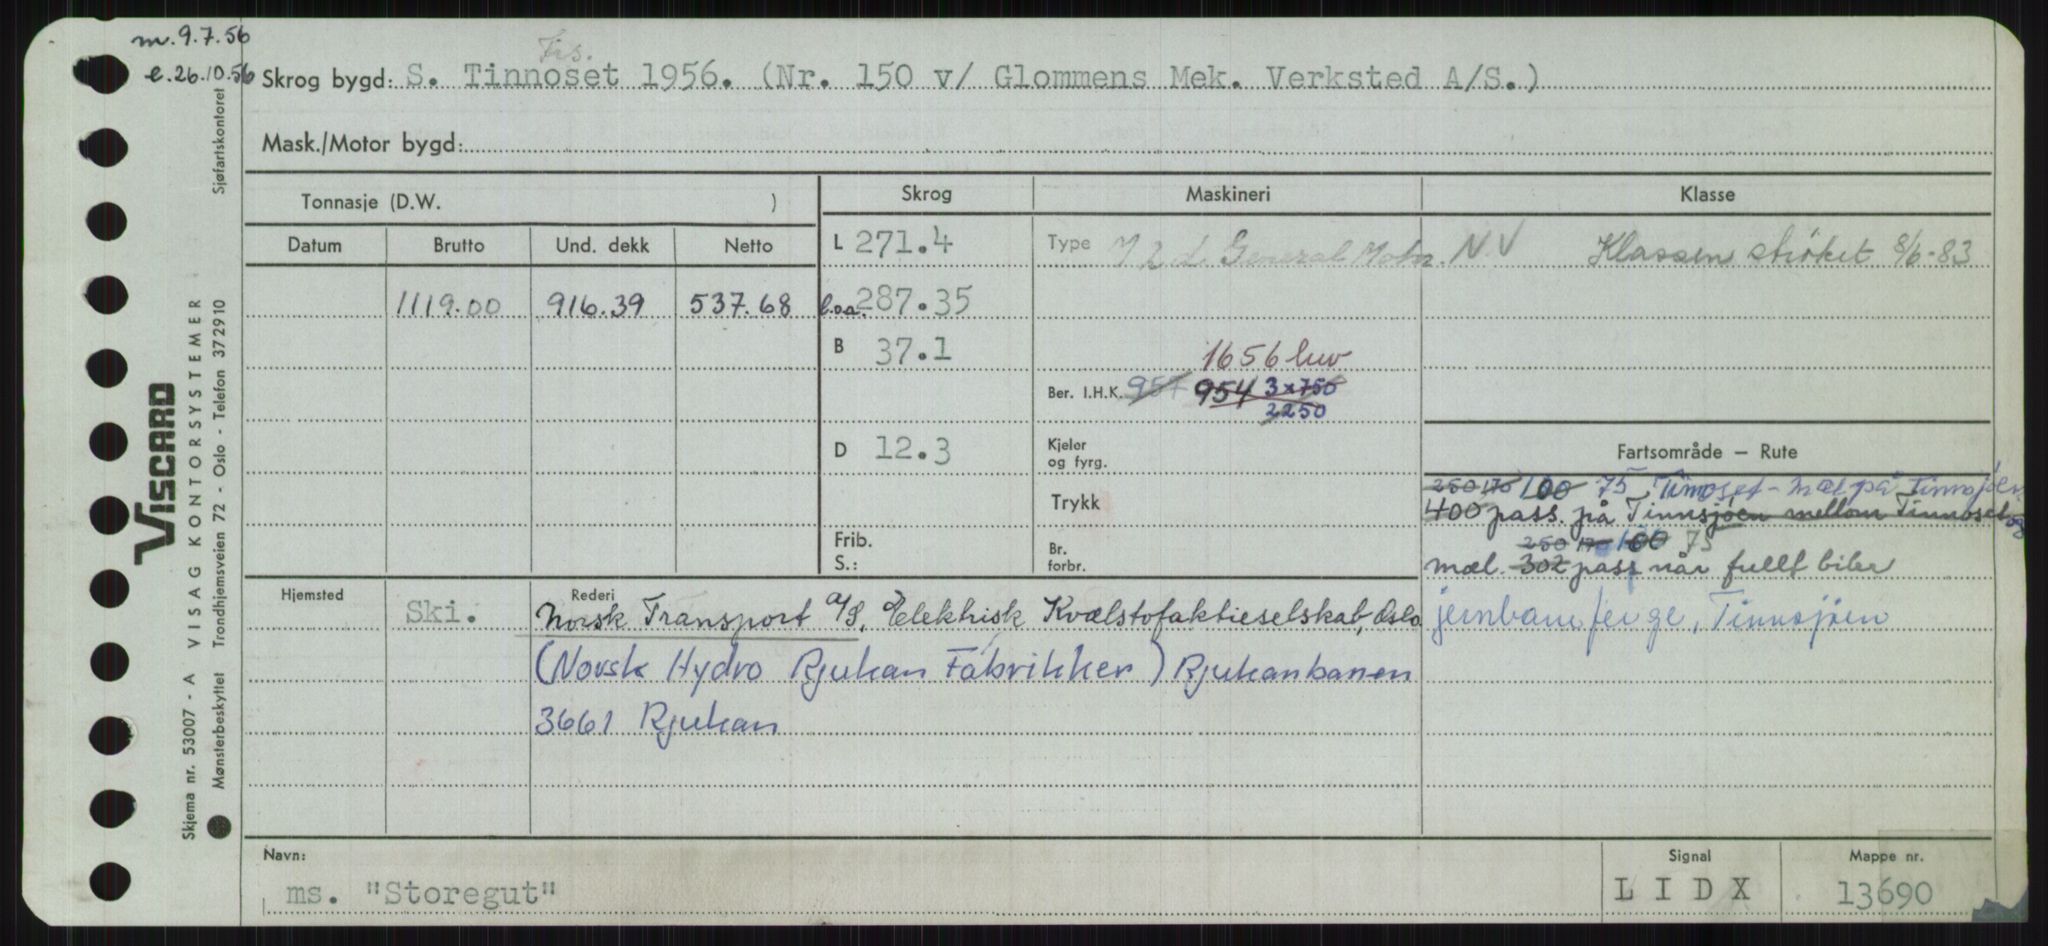 m. 9.7.56
e. 26.10.56
Frs.
Skrog bygd: S. Tinnoset 1956. (Nr. 150 v/ Glommens Mek. Verksted A/S.)
Mask./Motor bygd:
Tonnasje (D.W. )
Skrog
Maskineri
Klasse
Datum Brutto Und. dekk Netto
L 271.4
Type M 2 d. General Motor
N.V Klassen strøket 8/6-83
1119.00 916.39 537.68
l.o.a. 287.35
B 37.1
1656 hw
Ber. I.H.K. 957 954 3x750
2250
D 12.3
Kjeler
og fyrg.
Fartsområde – Rute
Trykk
250 170 100 75 Tinnoset - Mæl på Tinnsjøen
400 pass. på Tinnsjøen mellom Tinnoset og
Frib.
S.:
Br.
forbr.
250 170 100 75
mæl. 302 pass når fullt biler
Hjemsted
Ski.
Rederi
Norsk Transport A/S, Elektrisk Kvælstofaktieselskab, Oslo
jernbaneferge, Tinnsjøen
(Norsk Hydro Rjukan Fabrikker) Rjukanbanen
3661 Rjukan
Navn:
ms. "Storegut"
Signal
LIDX
Mappe nr.
13690
VISCARD
Skjema nr. 53007 - A VISAG KONTORSYSTEMER
Mønsterbeskyttet Trondhjemsveien 72 - Oslo - Telefon 372910
Sjøfartskontoret